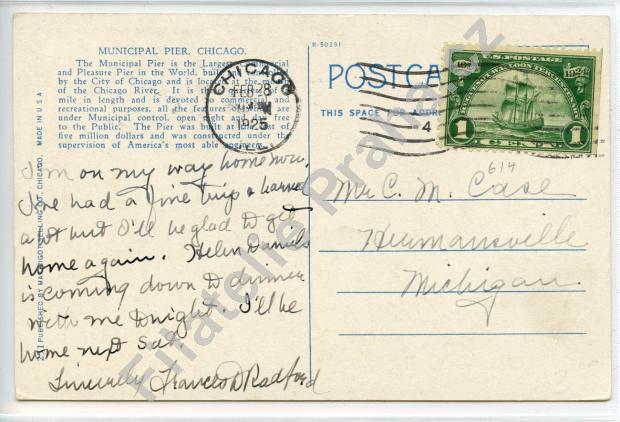 MUNICIPAL PIER, CHICAGO.
The Municipal Pier is the Largest Commercial
and Pleasure Pier in the World, built
by the City of Chicago and is located at the mouth
of the Chicago River. It is
mile in length and is devoted to commercial and
recreational purposes, all the features of which are
under Municipal control, open night and day free
to the Public. The Pier was built at
five million dollars and was constructed under the
supervision of America's most able engineers.
R-50231
POSTCARD
THIS SPACE FOR ADDRESS
CHICAGO
FEB 28
1925
4
U.S. POSTAGE
HUGUENOT WALLOON TERCENTENARY
1624
1924
1 CENT 1
614
I'm on my way home now.
I've had a fine trip & learned
a lot but I'll be glad to get
home again. Helen Daniels
is coming down to dinner
with me tonight. I'll be
home next Sat
Sincerely Frances D Radford
Mr C. M. Case
Hermansville
Michigan.
PUBLISHED BY MAX RIGOT SELLING CO., CHICAGO, MADE IN U S A
Filatelie Praha.cz